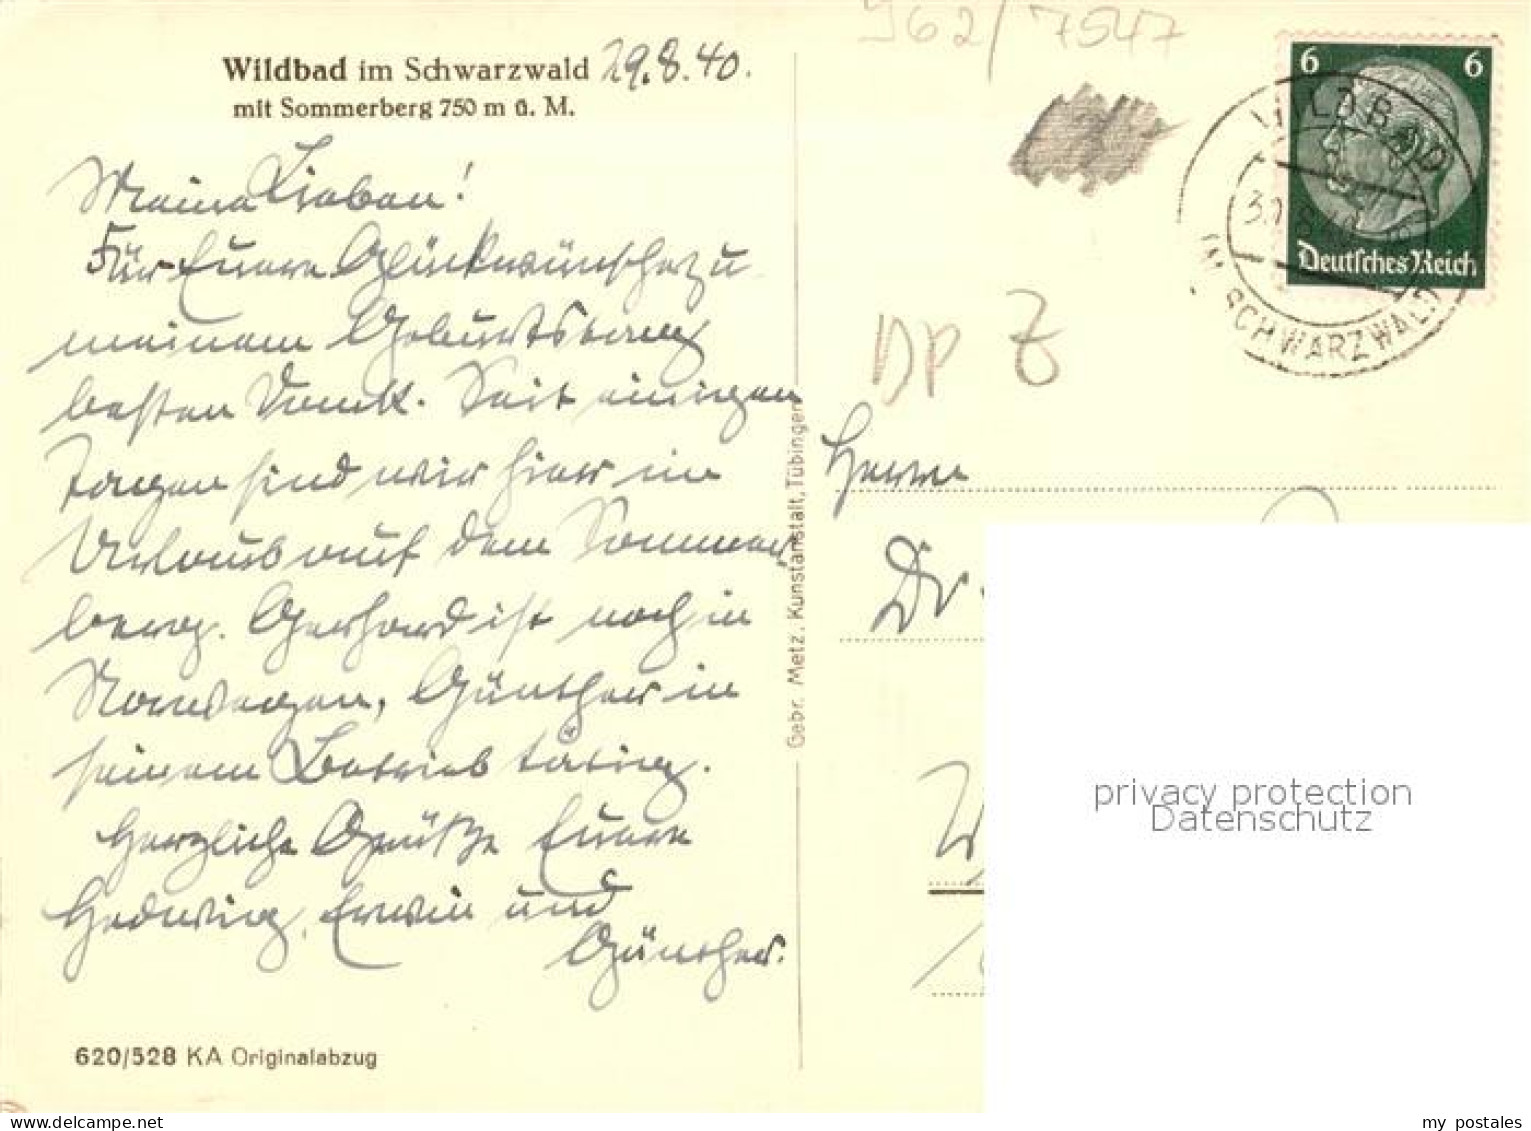 Wildbad im Schwarzwald 29.8.40.
mit Sommerberg 750 m ü. M.
Meine Lieben!
Für Euere Glückwünsche zu
meinem Geburtstag
besten Dank. Seit einigen
Tagen sind wir hier im
Urlaub auf dem Sommer-
berg. Gerhard ist noch in
Norwegen, Günther in
seinem Betrieb tätig.
Herzliche Grüße Euere
Hedwig, Erwin und
Günther.
620/528 KA Originalabzug
Gebr. Metz, Kunstanstalt, Tübingen
962/7547
6 6
Deutsches Reich
WILDBAD
30.8.40
IM SCHWARZWALD
DP
Herrn
Dr.
privacy protection
Datenschutz
my postales